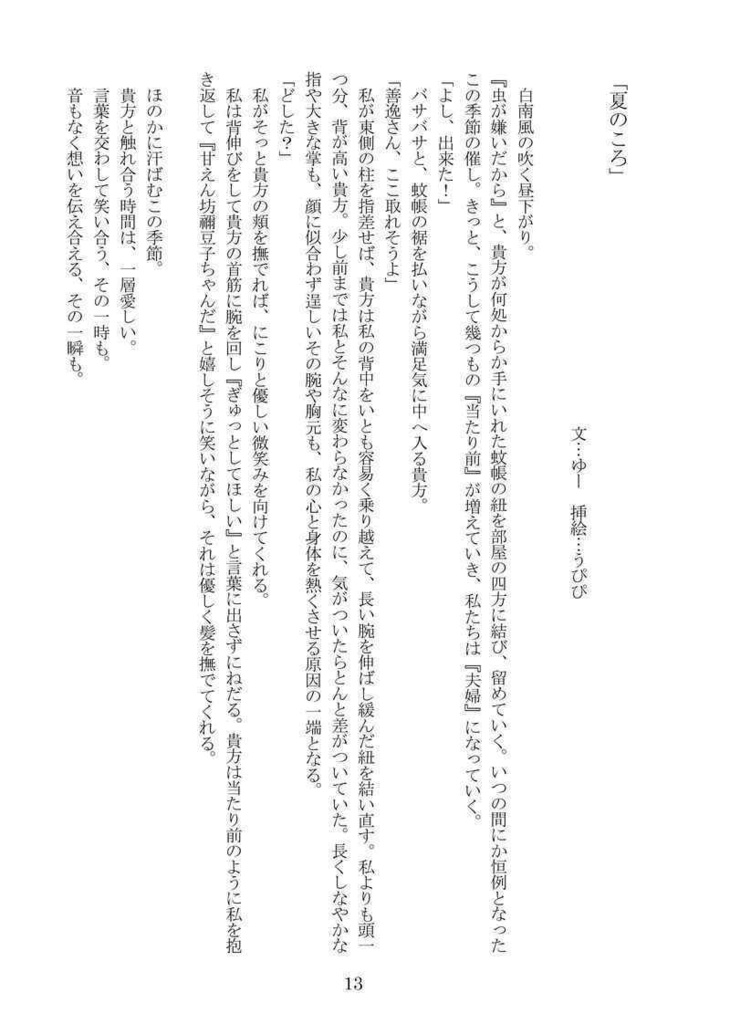 「夏のころ」
文…ゆー　挿絵…うぴぴ
白南風の吹く昼下がり。
『虫が嫌いだから』と、貴方が何処からか手にいれた蚊帳の紐を部屋の四方に結び、留めていく。いつの間にか恒例となった
この季節の催し。きっと、こうして幾つもの『当たり前』が増えていき、私たちは『夫婦』になっていく。
「よし、出来た！」
バサバサと、蚊帳の裾を払いながら満足気に中へ入る貴方。
「善逸さん、ここ取れそうよ」
私が東側の柱を指差せば、貴方は私の背中をいとも容易く乗り越えて、長い腕を伸ばし緩んだ紐を結い直す。私よりも頭一
つ分、背が高い貴方。少し前までは私とそんなに変わらなかったのに、気がついたらとんと差がついていた。長くしなやかな
指や大きな掌も、顔に似合わず逞しいその腕や胸元も、私の心と身体を熱くさせる原因の一端となる。
「どした？」
私がそっと貴方の頬を撫でれば、にこりと優しい微笑みを向けてくれる。
私は背伸びをして貴方の首筋に腕を回し『ぎゅっとしてほしい』と言葉に出さずにねだる。貴方は当たり前のように私を抱
き返して『甘えん坊禰豆子ちゃんだ』と嬉しそうに笑いながら、それは優しく髪を撫でてくれる。
ほのかに汗ばむこの季節。
貴方と触れ合う時間は、一層愛しい。
言葉を交わして笑い合う、その一時も。
音もなく想いを伝え合える、その一瞬も。
13